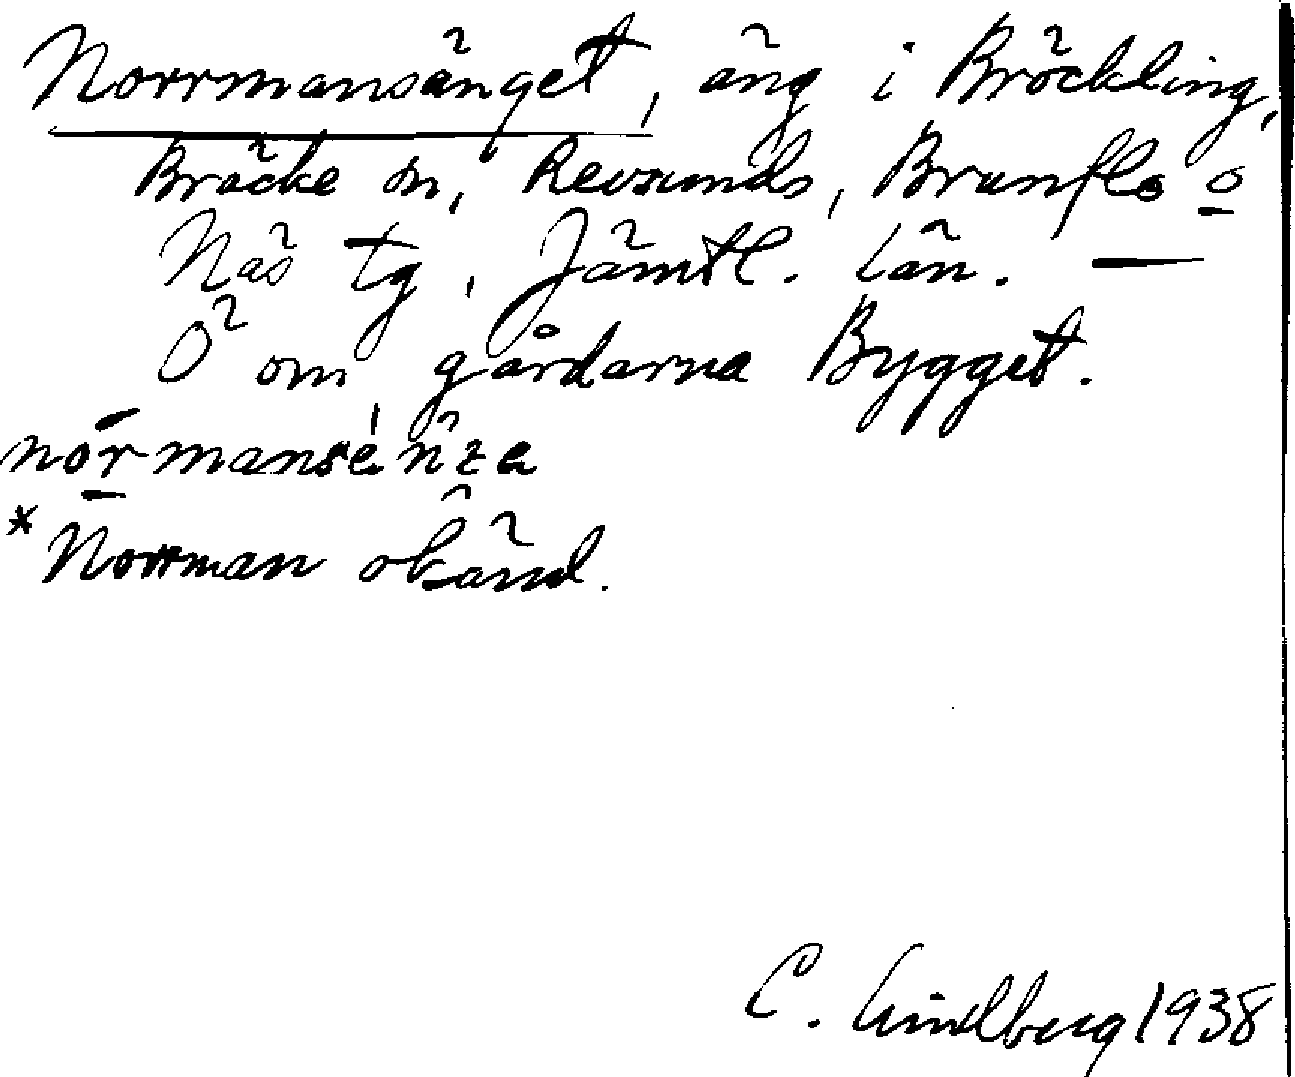 Norrmansänget, äng i Bröckling,
Bräcke sn, Revsunds, Brunflo o
Näs tg, Jämtl. län. —
Ö om gårdarna Bygget.
*Norrman okänd.
C. Lindberg 1938